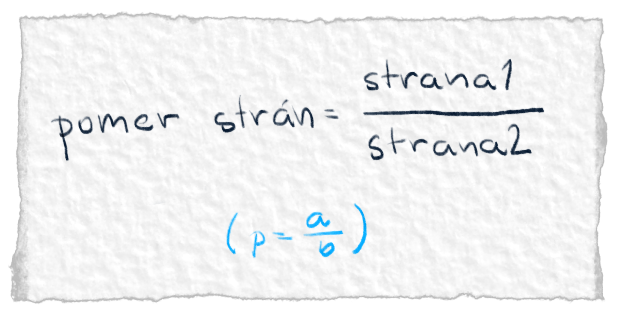 pomer strán = strana1 / strana2
(p = a / b)